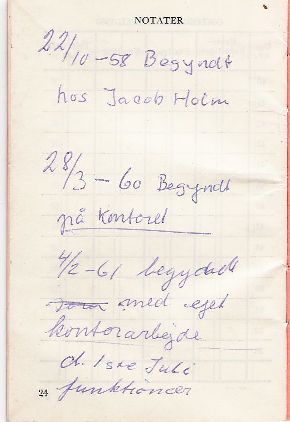 NOTATER
22/10-58 Begyndt
hos Jacob Holm
28/3-60 Begyndt
på kontoret
4/2-61 begydndt
med eget
kontorarbejde
d. 1ste Juli
24 funktionær